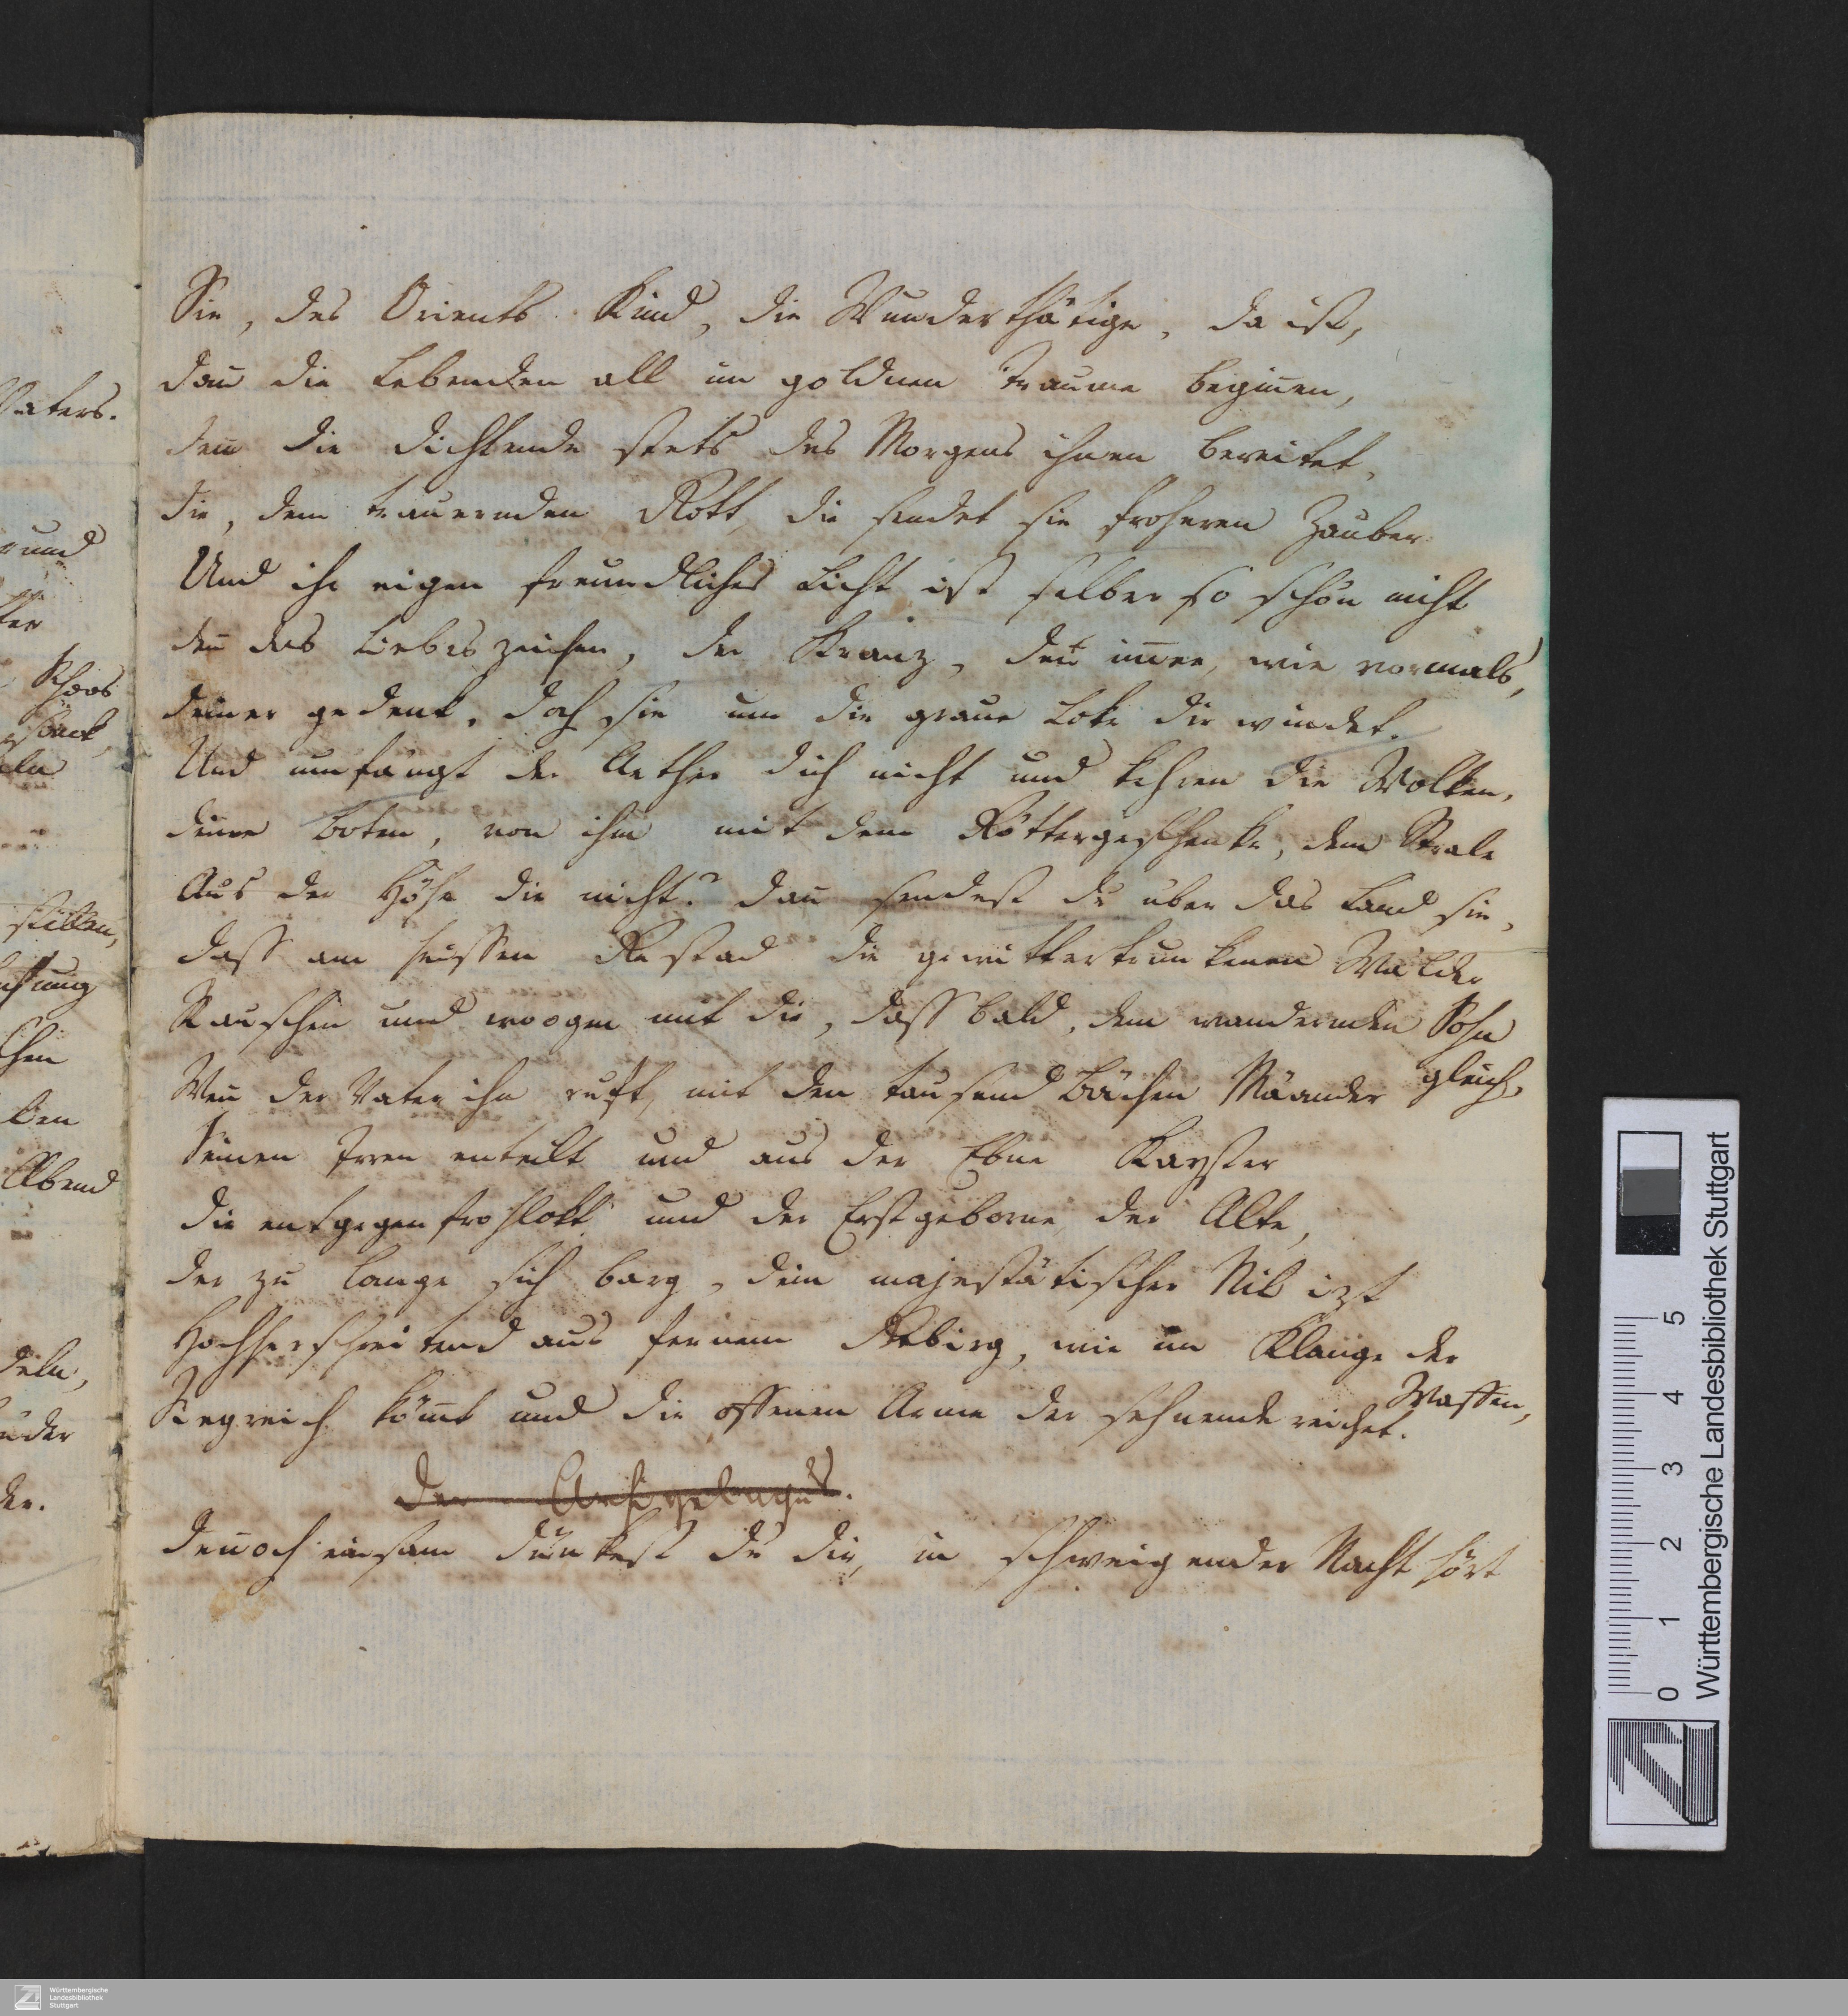 Vaters.
Sie, des Orients Kind, die Wunderthätige, da ist,
Dañ die Lebenden all im goldnen Traume begiñen,
Den die Dichtende stets des Morgens ihnen bereitet,
Dir, dem trauernden Gott, dir sendet sie froheren Zauber
Und ihr eigen freundliches Licht ist selber so schön nicht
Deñ das Liebeszeichen, der Kranz, den im̄er, wie vormals,
Deiner gedenk, doch sie um die graue Loke dir windet.
Und umfängt der Aether dich nicht und kehren die Wolken,
Deine Boten, von ihm mit dem Göttergeschenke, dem Strale
Aus der Höhe dir nicht? Dañ sendest du über das Land sie,
Daß am heißen Gestad die gewittertrunkenen Wälder
Rauschen und woogen mit dir, daß bald, dem wandernden Sohn gleich,
Weñ der Vater ihn ruft, mit den tausend Bächen Mäander
Seinen Irren enteilt und aus der Ebne Kayster
Dir entgegenfrohlokt und der Erstgeborne, der Alte,
Der zu lange sich barg, dein majestätischer Nil izt
Hochherschreitend aus fernem Gebirg, wie im Klange der Waffen,
Siegreich köm̄t und die offenen Arme der sehnende reichet.
Der Archipelagus.
Deñoch einsam dünkest du dir, in schweigender Nacht hört
Württembergische Landesbibliothek Stuttgart
0 1 2 3 4 5
Württembergische
Landesbibliothek
Stuttgart